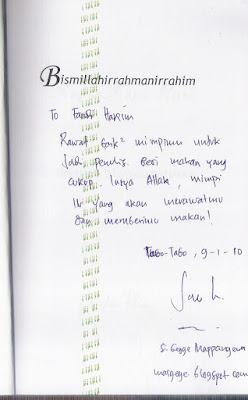 Bismillahirrahmanirrahim
To Hakim
Rawat baik² mimpimu untuk
jadi penulis. Beri makan yang
cukup. Insya Allah, mimpi
itu yang akan merawatmu
dan memberimu makan!
Tabo-Tabo, 9-1-10
S. Gegge Mappangewa
masgege.blogspot.com